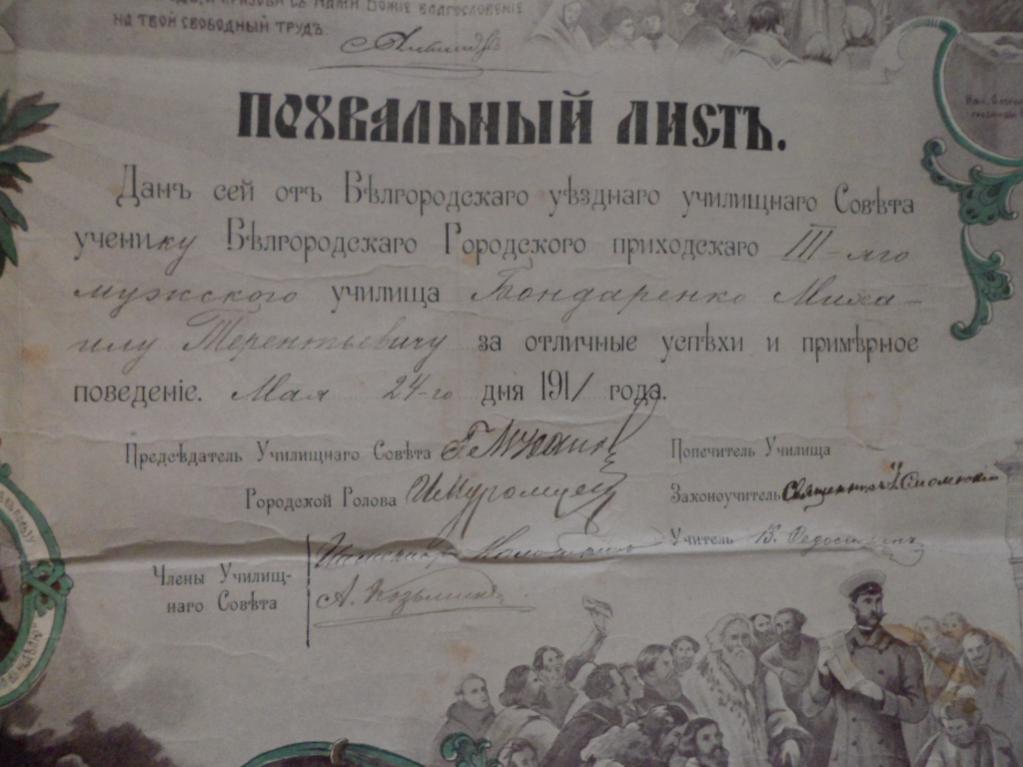 Божіе благословеніе
на твой свободный трудъ
Похвальный листъ.
Данъ сей отъ Бѣлгородскаго уѣзднаго училищнаго Совѣта
ученику Бѣлгородскаго Городского приходскаго III-яго
мужского училища Бондаренко Миха-
илу Терентьевичу за отличные успѣхи и примѣрное
поведеніе. Мая 24-го дня 1911 года.
Предсѣдатель Училищнаго Совѣта
Попечитель Училища
Городской Голова И Муромцев
Законоучитель Священникъ
Учитель В. Федос
Члены Училищ-
наго Совѣта
А. Козьмин